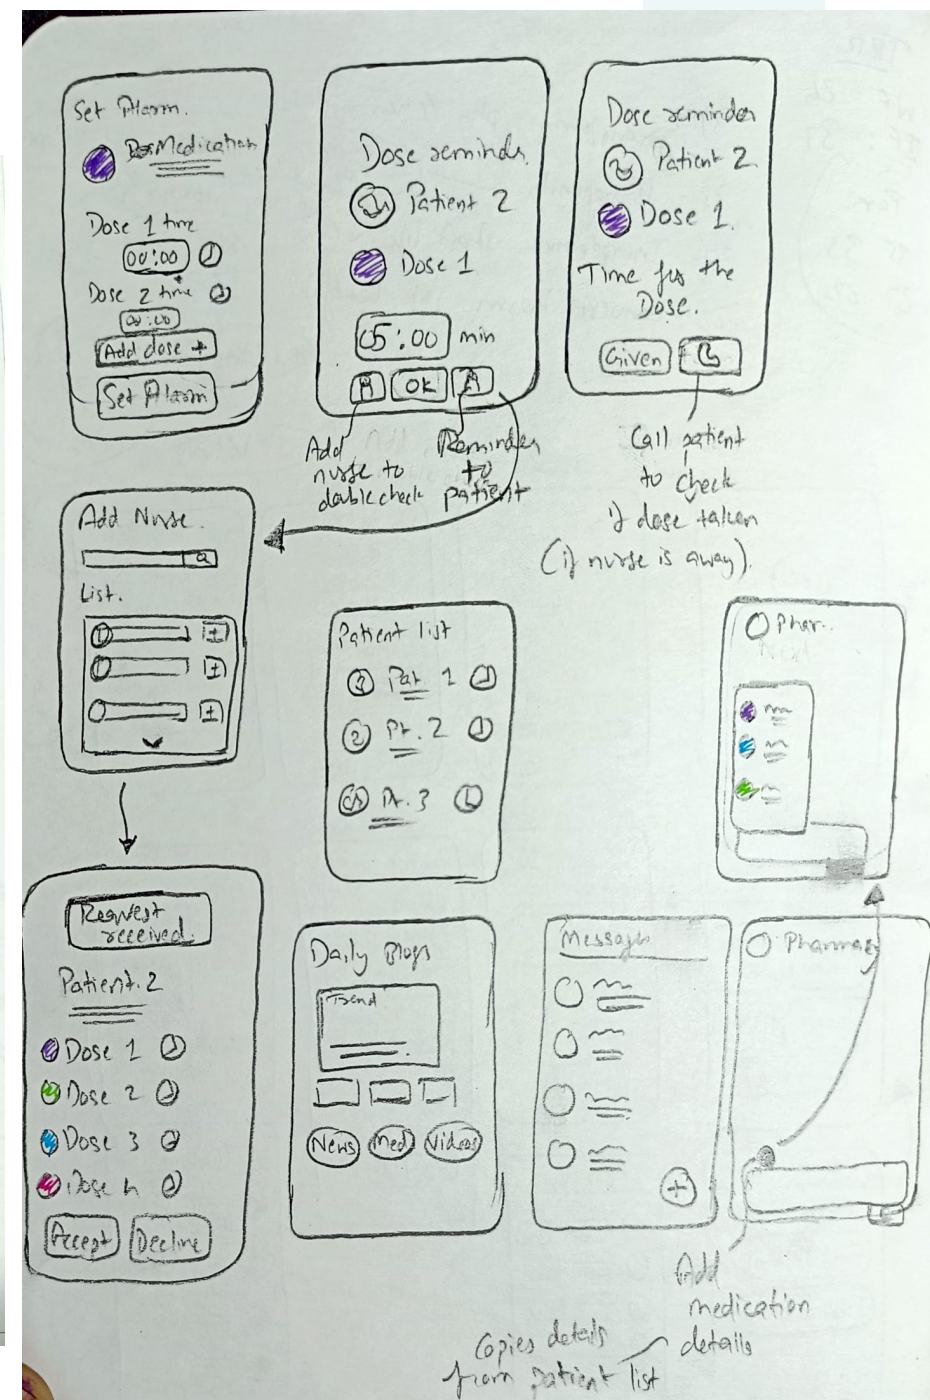 Set Alarm.
Medication
Dose 1 time
00:00
Dose 2 time
00:00
Add dose +
Set Alarm
Dose reminder.
Patient 2
Dose 1
05:00 min
OK
Add
nurse to
double check
Reminder
to
patient
Dose reminder
Patient 2.
Dose 1.
Time for the
Dose.
Given
Call patient
to check
if dose taken
(if nurse is away).
Add Nurse.
List.
+
+
+
Patient list
Pat 1
Pt. 2
Pt. 3
Phar..
Request
received.
Patient.2
Dose 1
Dose 2
Dose 3
Dose n
Accept
Decline
Daily Blogs
Trend
News
Med
Videos
Messages
+
Pharmacy
Add
medication
details
Copies details
from patient list